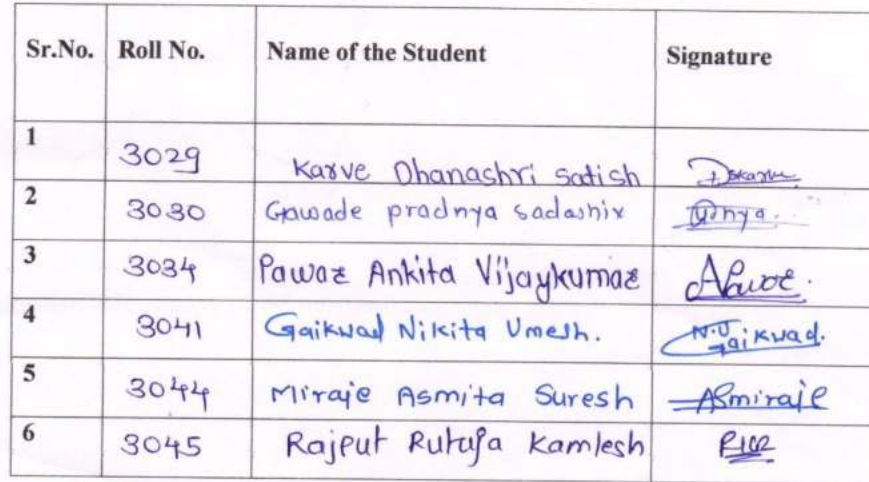 Sr.No. Roll No. Name of the Student Signature
1 3029 Karve Dhanashri Satish Dskarve
2 3030 Gawade pradnya sadashiv
3 3034 Pawar Ankita Vijaykumar APawar.
4 3041 Gaikwad Nikita Umesh. N.U Gaikwad.
5 3044 Miraje Asmita Suresh ASmiraje
6 3045 Rajput Rutuja Kamlesh